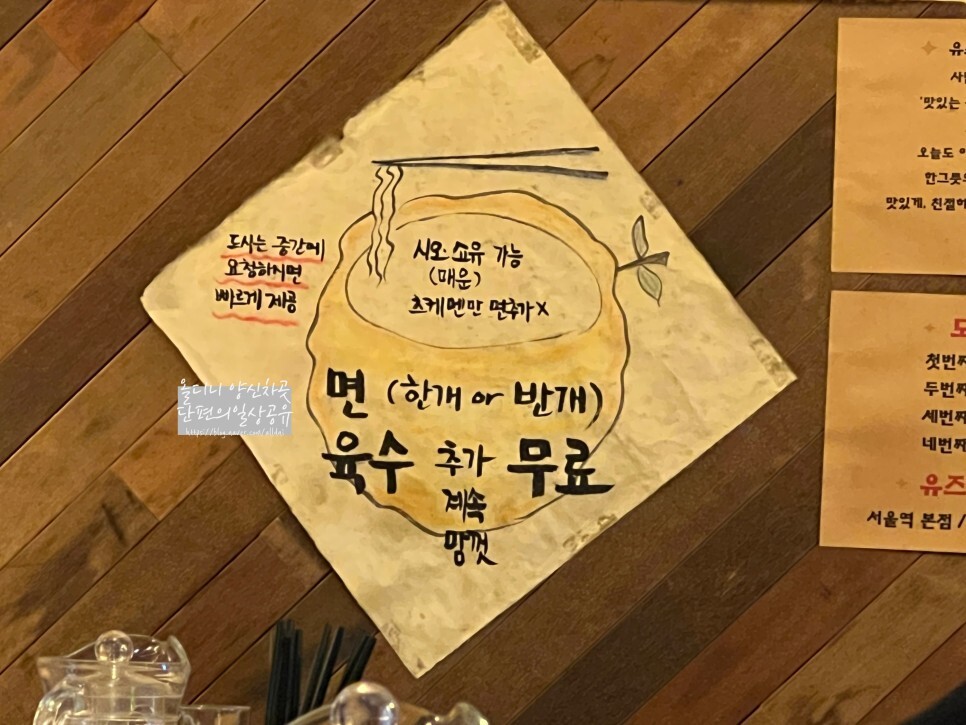 도시는 중간에
요청하시면
빠르게 제공
시오·쇼유 가능
(매운)
츠케멘만 면추가X
면 (한개 or 반개)
육수 추가 무료
계속
맘껏
올디니 양신차곳
단편의일상공유
유
사
'맛있는
오늘도 이
한그릇의
맛있게, 친절하
첫번째
두번째
세번째
네번째
유즈
서울역 본점 /